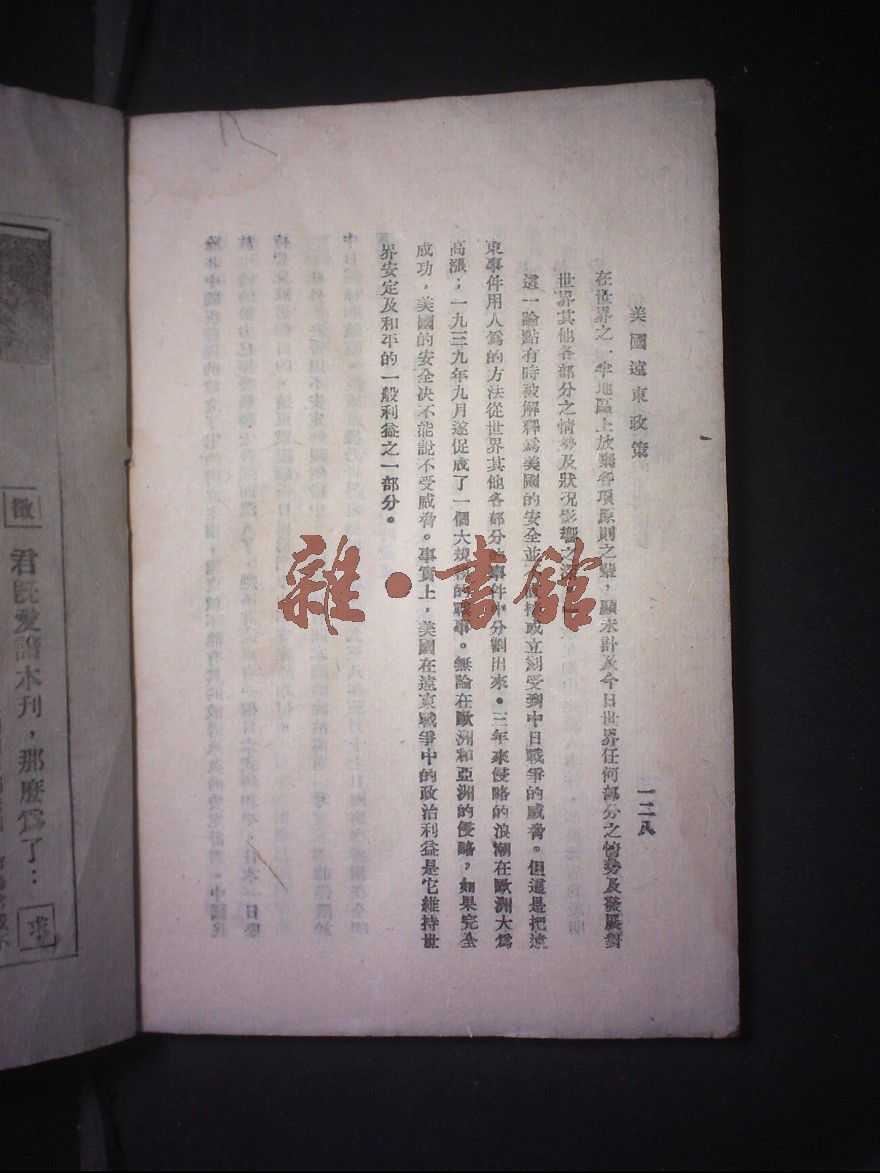 美國遠東政策
一二八
在世界之一半地區上放棄各項原則之舉，顯未計及今日世界任何部分之情勢及發展對
世界其他各部分之情勢及狀況影響之深
這一論點有時被解釋爲美國的安全並 或立刻受到中日戰爭的威脅。但這是把遠
東事件用人爲的方法從世界其他各部分 事件中分割出來。三年來侵略的浪潮在歐洲大爲
高漲；一九三九年九月遂促成了一個大規模的戰事。無論在歐洲和亞洲的侵略，如果完全
成功，美國的安全决不能說不受威脅。事實上，美國在遠東戰爭中的政治利益是它維持世
界安定及和平的一般利益之一部分。
雜·書館
徵
君既愛讀本刊，那麼爲了：
求